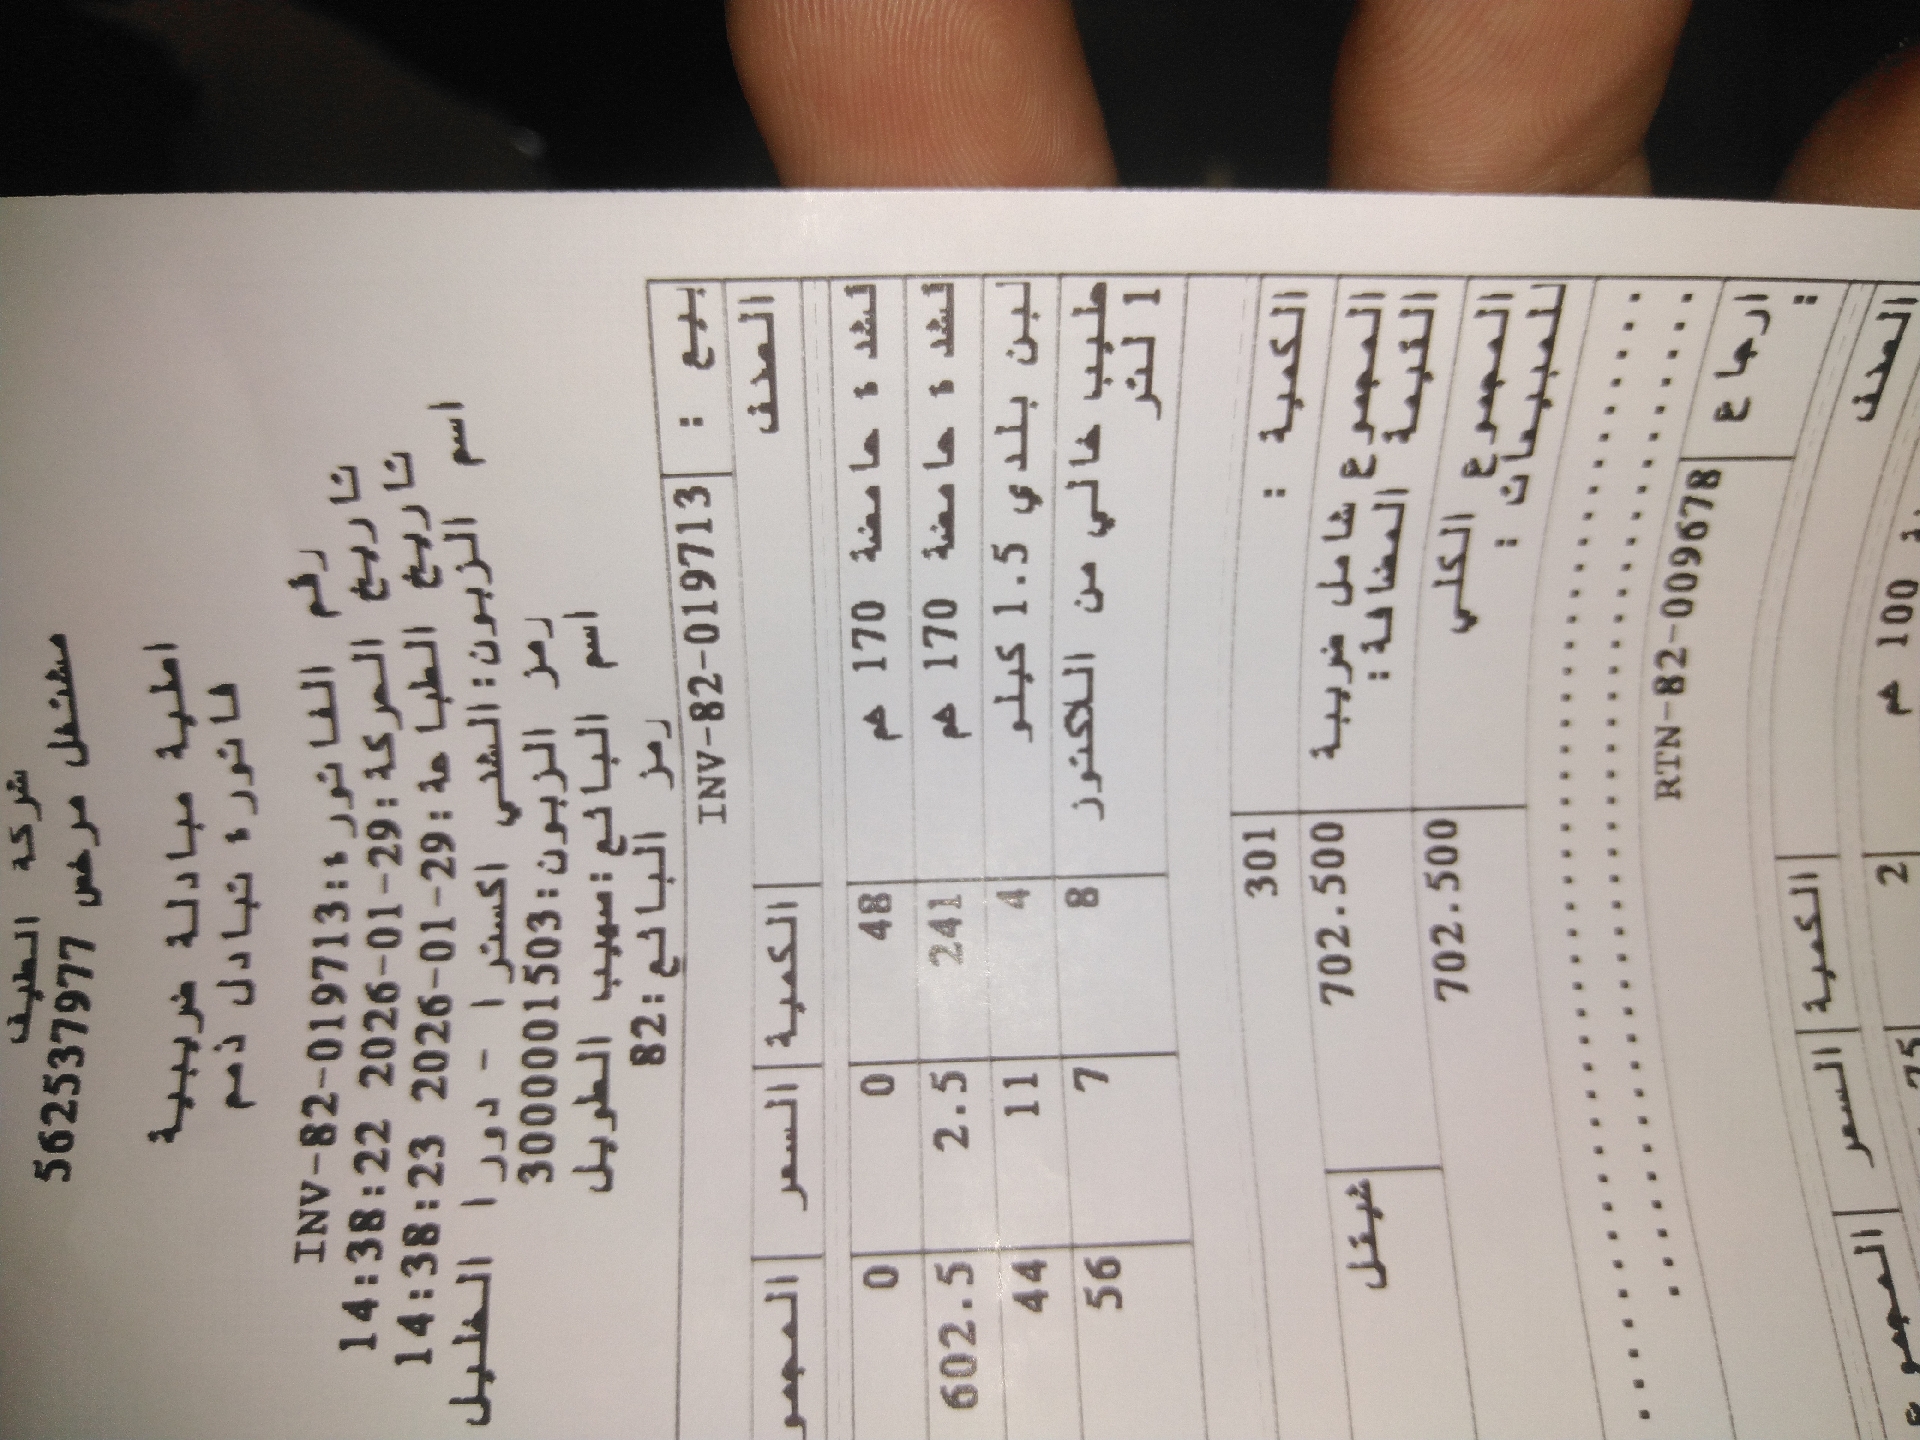 شركة الطيف
مشتغل مرخص 562537977
اصلية مبادلة ضريبية
فاتورة تبادل ذمم
رقم الفاتورة:INV-82-019713
تاريخ الحركة:29-01-2026 14:38:22
تاريخ الطباعة:29-01-2026 14:38:23
اسم الزبون:الشني اكسترا - دورا الخليل
رمز الزبون:3000001503
اسم البائع:صهيب الطويل
رمز البائع:82
بيع : INV-82-019713
الصنف الكمية السعر المجمو
لشدة حامضة 170 غم 48 0 0
لشدة حامضة 170 غم 241 2.5 602.5
لبن بلدي 1.5 كيلو 4 11 44
حليب خالي من اللاكتوز 8 7 56
1 لتر
الكمية : 301
المجموع شامل ضريبة 702.500 شيقل
القيمة المضافة:
المجموع الكلي 702.500
للمبيعات :
ارجاع RTN-82-009678
:
الصنف الكمية السعر المجموع
100 غم 2